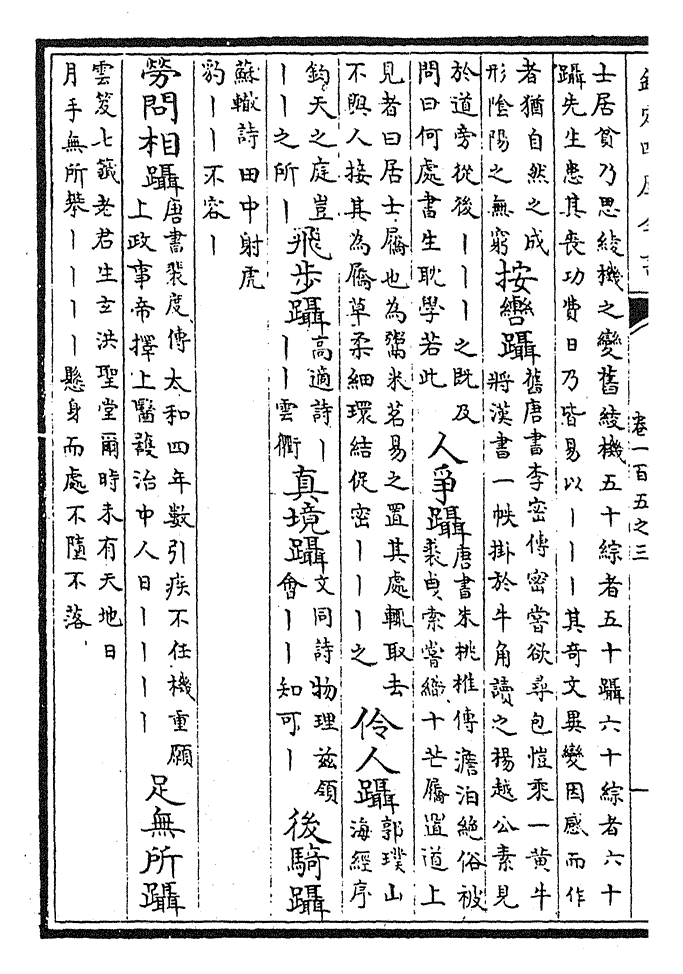 欽定四庫全書
卷一百五之三
一
士居貧乃思綾機之變舊綾機五十綜者五十躡六十綜者六十
躡先生患其喪功費日乃皆易以丨丨丨其奇文異變因感而作
者猶自然之成
形陰陽之無窮
按轡躡
舊唐書李密傳密嘗欲尋包愷乘一黃牛
將漢書一帙掛於牛角讀之楊越公素見
於道旁從後丨丨丨之既及
問曰何處書生耽學若此
人爭躡
唐書朱桃椎傳澹泊絶俗被
裘曳索嘗織十芒屩置道上
見者曰居士屩也為鬻米茗易之置其處輒取去
不與人接其為屩草柔細環結促密丨丨丨之
伶人躡
郭璞山
海經序
鈞天之庭豈
丨丨之所丨
飛步躡
高適詩丨
丨丨雲衢
真境躡
文同詩物理兹領
會丨丨知可丨
後騎躡
蘇轍詩田中射虎
豹丨丨不容丨
勞問相躡
唐書裴度傳太和四年數引疾不任機重願
上政事帝擇上醫護治中人日丨丨丨丨
足無所躡
雲笈七籤老君生玄洪聖堂爾時未有天地日
月手無所攀丨丨丨丨懸身而處不墮不落